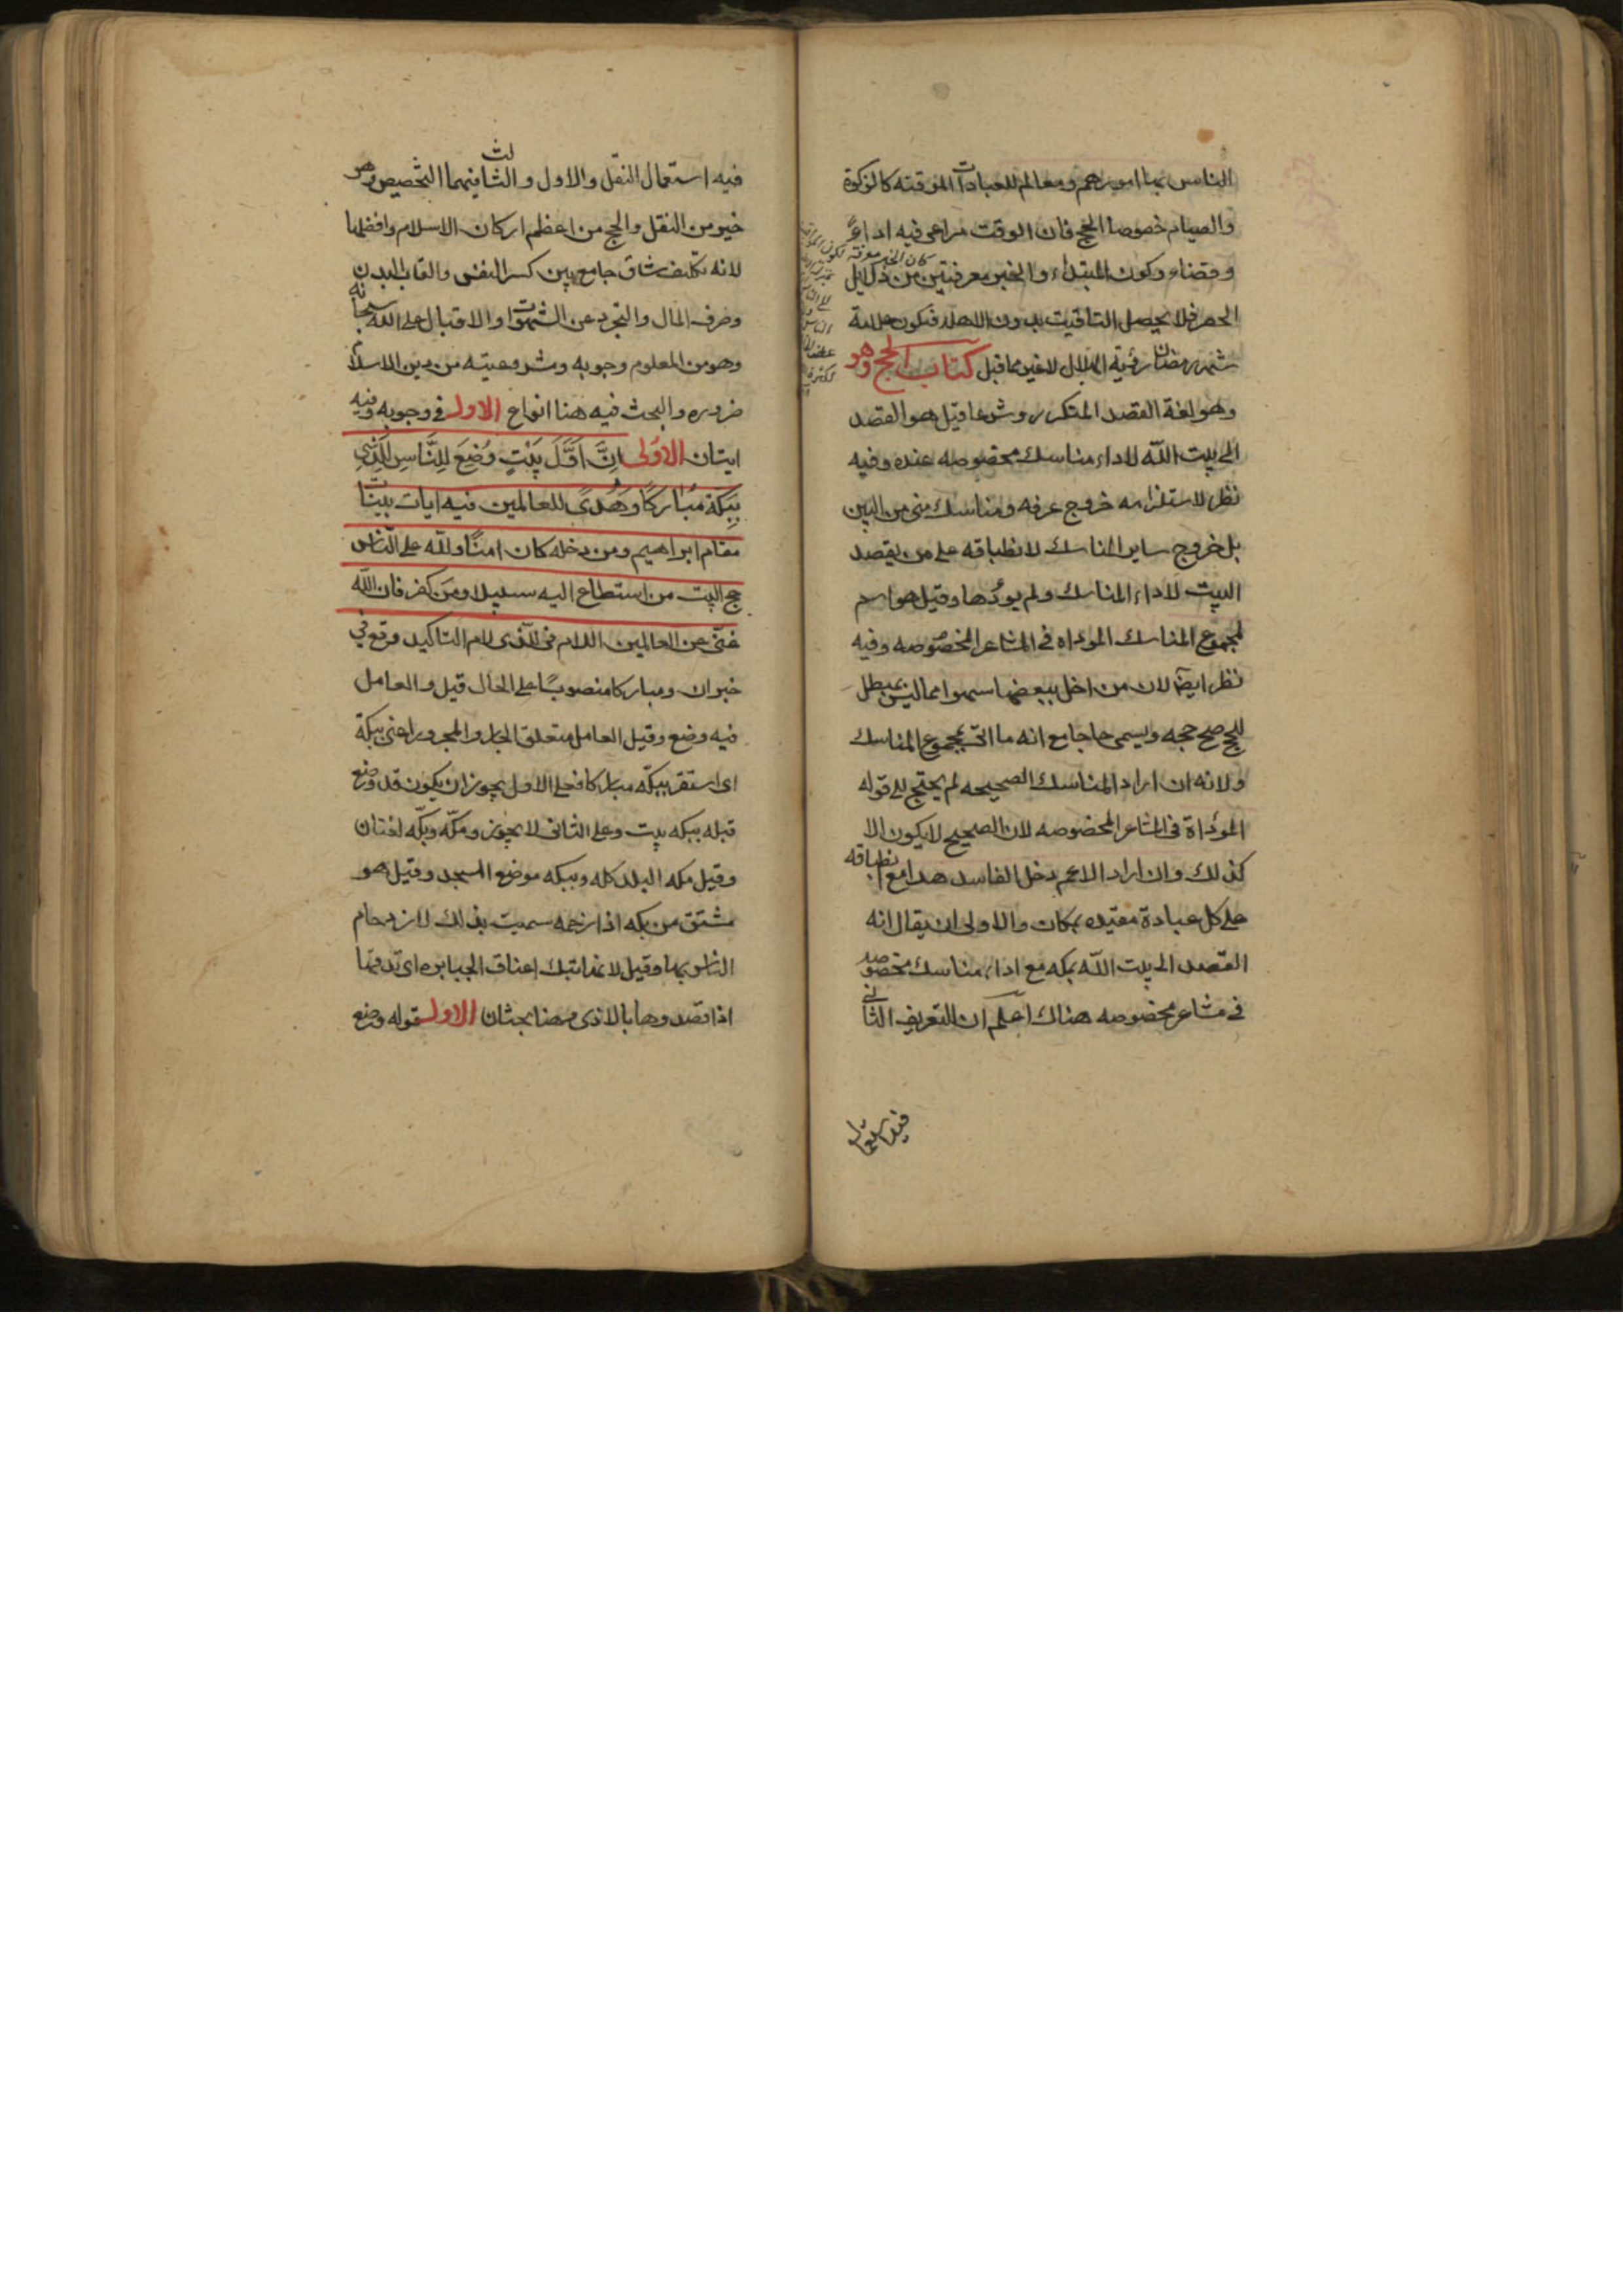 الناس بها امورهم ومعالم للعبادات الموقته كالزكوة
والصيام خصوصا الحج فان الوقت مراعى فيه اداءً
وقضاء وكون المبتداء والخبر معرفتين من دلايل
الحصر فلا يحصل التاقيت بدون الاهلة فيكون علامة
شهر رمضان رؤية الهلال لا غير مما قيل كتاب الحج وهو
وهو لغة القصد المتكرر وشرعا قيل هو القصد
الى بيت الله لاداء مناسك مخصوصه عنده وفيه
نظر لاستلزامه خروج عرفه ومناسك منى من البين
بل خروج ساير المناسك لانطباقه على من يقصد
البيت لاداء المناسك ولم يؤدها وقيل هو اسم
لمجموع المناسك الموداه فى المشاعر المخصوصه وفيه
نظر ايضا لان من اخل ببعضها سهوا مما ليس بمبطل
للحج صح حجه ويسمى حاجا مع انه ما اتى بمجموع المناسك
ولانه ان اراد المناسك الصحيحه لم يحتج الى قوله
المؤداة فى المشاعر المخصوصه لان الصحيح لا يكون الا
كذلك وان اراد الاعم دخل الفاسد هذا مع انطباقه
على كل عبادة مقيده بمكان والاولى ان يقال انه
القصد الى بيت الله بمكه مع اداء مناسك مخصوصه
فى مشاعر مخصوصه هناك اعلم ان التعريف الثانى
فيه استعمال
فيه استعمال النقل والاول والثالث فيهما التخصيص وهو
خير من النقل والحج من اعظم اركان الاسلام وافضلها
لانه تكليف شاق جامع بين كسر النفس واتعاب البدن
وصرف المال والتجرد عن الشهوات والاقبال على الله سبحانه
وهو من المعلوم وجوبه ومشروعيته من دين الاسلام
ضروره والبحث فيه هنا انواع الاول فى وجوبه وفيه
ايتان الاولى اِنَّ اَوَّلَ بَيْتٍ وُضِعَ لِلنَّاسِ لَلَّذِى
بِبَكَّةَ مُبَارَكًا وَهُدًى للعالمين فيه ايات بينات
مقام ابراهيم ومن دخله كان امنًا ولله على الناس
حج البيت من استطاع اليه سبيلا ومن كفر فان الله
غنى عن العالمين اللام فى للذى لام التاكيد وقع فى
خبر ان ومباركا منصوبًا على الحال قيل والعامل
فيه وضع وقيل العامل متعلق الجار والمجرور اعنى ببكة
اى استقر ببكّه مباركا فعلى الاول يجوز ان يكون قد وضع
قبله ببكه بيت وعلى الثانى لا يجوز ومكّه وبكّه لغتان
وقيل مكه البلد كله وببكه موضع المسجد وقيل هو
مشتق من بكه اذا زحمه سميت بذلك لازدحام
الناس بها وقيل لانها تبك اعناق الجبابره اى تدقها
اذا قصدوها بالاذى وهنا بحثان الاول قوله وضع